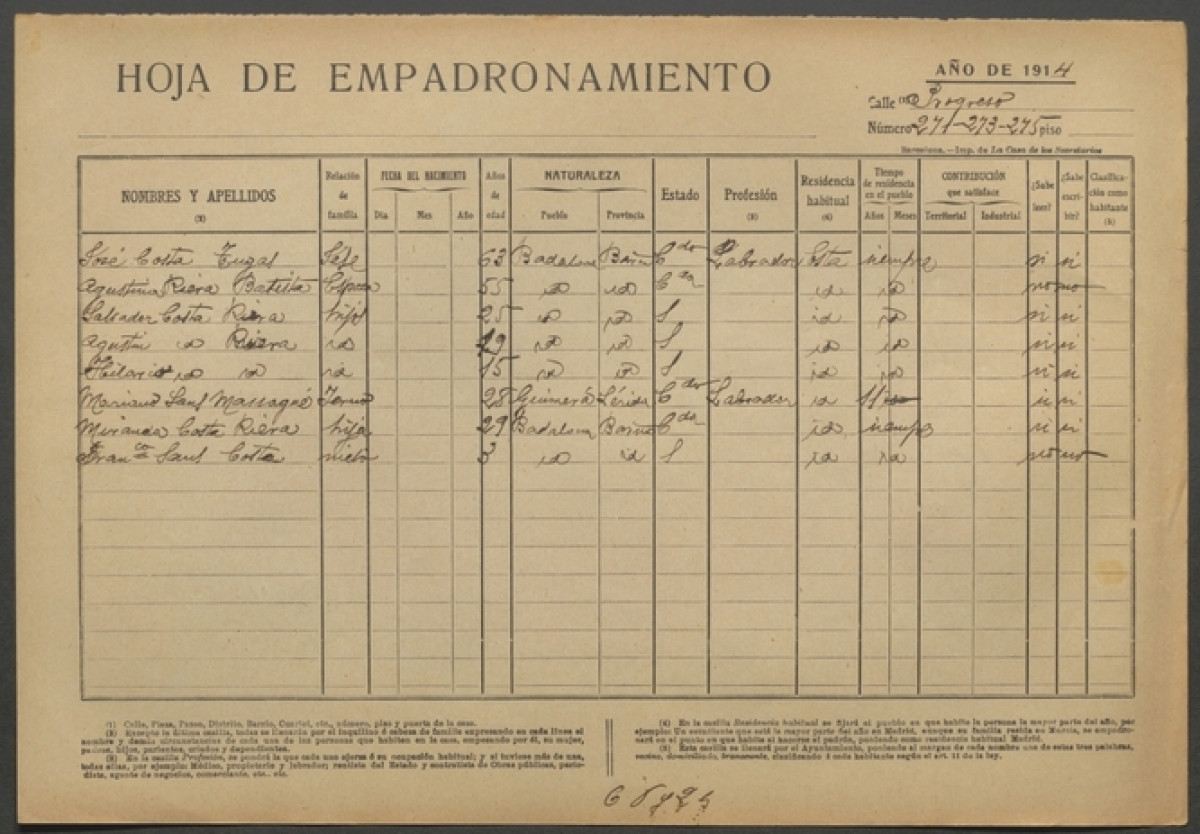 HOJA DE EMPADRONAMIENTO
AÑO DE 1914
Calle (1) Progreso
Número 271-273-275 piso
Barcelona.—Imp. de La Casa de los Secretarios
NOMBRES Y APELLIDOS (2) Relación de familia FECHA DEL NACIMIENTO Día Mes Año Años de edad NATURALEZA Pueblo Provincia Estado Profesión (3) Residencia habitual (4) Tiempo de residencia en el pueblo Años Meses CONTRIBUCIÓN que satisface Territorial Industrial ¿Sabe leer? ¿Sabe escribir? Clasificación como habitante (5)
José Costa Jefe 63 Badalona Barna Cdo Labrador Esta siempre si si
Agustina Riera Batista Esposa 55 id id Cda id id no no
Salvador Costa Riera hijo 25 id id S id id si si
Agustin id Riera id 19 id id S id id si si
Hilario id id id 15 id id S id id si si
Mariano Sans Massagué Yerno 28 Guimerá Lérida Cdo Labrador id 11 si si
Miranda Costa Riera hija 29 Badalona Barna Cda id siempre si si
Franco Sans Costa nieto 3 id id S id id no no
(1) Calle, Plaza, Paseo, Distrito, Barrio, Cuartel, etc., número, piso y puerta de la casa.
(2) Excepto la última casilla, todas se llenarán por el inquilino ó cabeza de familia expresando en cada línea el
nombre y demás circunstancias de cada una de las personas que habiten en la casa, empezando por él, su mujer,
padres, hijos, parientes, criados y dependientes.
(3) En la casilla Profesión, se pondrá la que cada uno ejerza ó su ocupación habitual; y si tuviese más de una,
todas ellas, por ejemplo: Médico, propietario y labrador; rentista del Estado y contratista de Obras públicas, perio-
dista, agente de negocios, comerciante, etc., etc.
(4) En la casilla Residencia habitual se fijará el pueblo en que habite la persona la mayor parte del año, por
ejemplo: Un estudiante que está la mayor parte del año en Madrid, aunque su familia resida en Murcia, se empadro-
nará en el punto en que habita al hacerse el padrón, poniendo como residencia habitual Madrid.
(5) Esta casilla se llenará por el Ayuntamiento, poniendo al margen de cada nombre una de estas tres palabras,
vecino, domiciliado, transeunte, clasificando á cada habitante según el art. 11 de la ley.